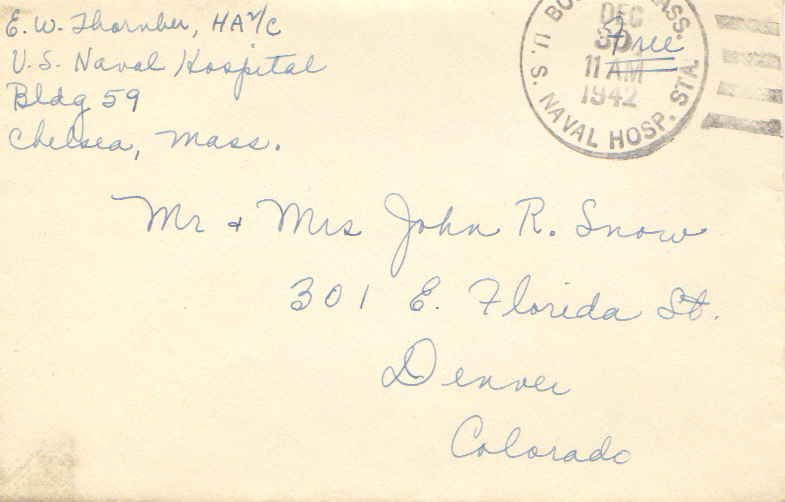 E. W. Thornber, HA 2/c
U. S. Naval Hospital
Bldg 59
Chelsea, Mass.
Free
DEC
30
11 AM
1942
MASS.
U. S. NAVAL HOSP. STA.
Mr + Mrs John R. Snow
301 E. Florida St.
Denver
Colorado